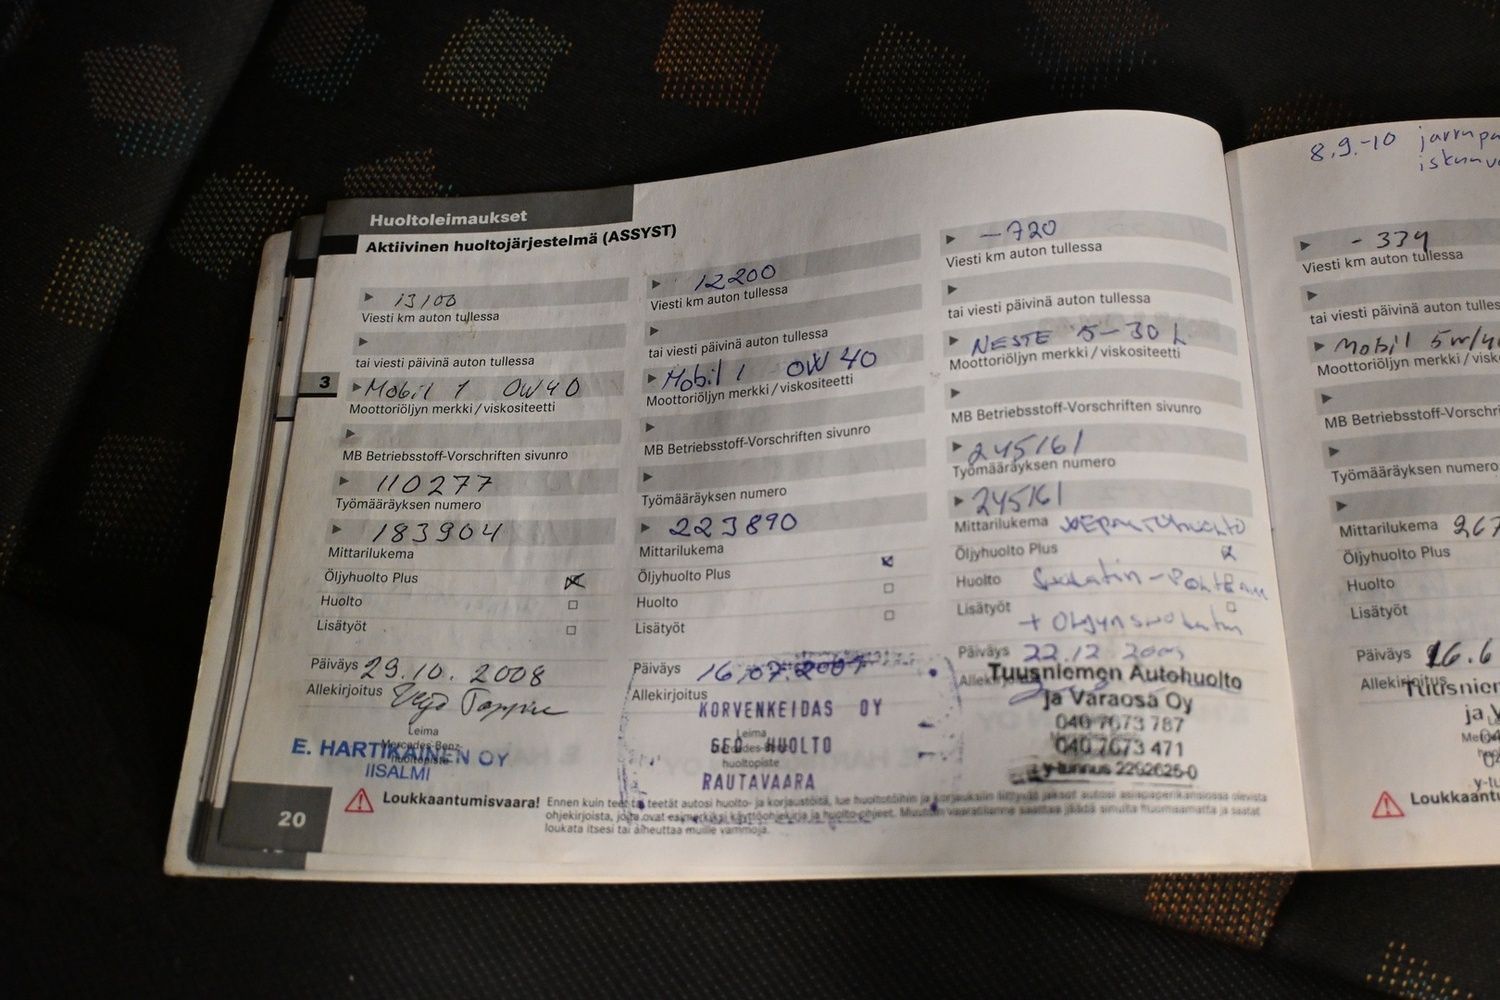 Huoltoleimaukset
Aktiivinen huoltojärjestelmä (ASSYST)
3
13100
Viesti km auton tullessa
tai viesti päivinä auton tullessa
Mobil 1 0W40
Moottoriöljyn merkki / viskositeetti
MB Betriebsstoff-Vorschriften sivunro
110277
Työmääräyksen numero
183904
Mittarilukema
Öljyhuolto Plus
Huolto
Lisätyöt
Päiväys 29.10.2008
Allekirjoitus
Leima
Mercedes-Benz-
huoltopiste
E. HARTIKAINEN OY
IISALMI
12200
Viesti km auton tullessa
tai viesti päivinä auton tullessa
Mobil 1 0W40
Moottoriöljyn merkki / viskositeetti
MB Betriebsstoff-Vorschriften sivunro
Työmääräyksen numero
223890
Mittarilukema
Öljyhuolto Plus
Huolto
Lisätyöt
Päiväys 16.07.2009
Allekirjoitus
KORVENKEIDAS OY
Leima
SEO HUOLTO
huoltopiste
RAUTAVAARA
-720
Viesti km auton tullessa
tai viesti päivinä auton tullessa
NESTE 5-30 L
Moottoriöljyn merkki / viskositeetti
MB Betriebsstoff-Vorschriften sivunro
245161
Työmääräyksen numero
245161
Mittarilukema
Öljyhuolto Plus
Huolto
Lisätyöt
Päiväys 22.12
Tuusniemen Autohuolto
ja Varaosa Oy
040 7673 787
040 7673 471
y-tunnus 2292625-0
Loukkaantumisvaara! Ennen kuin teet tai teetät autosi huolto- ja korjaustöitä, lue huoltotöihin ja korjauksiin liittyvät jaksot autosi asiapaperikansiossa olevista
ohjekirjoista, joita ovat esimerkiksi käyttöohjekirja ja huolto-ohjeet.
loukata itsesi tai aiheuttaa muille vammoja.
20
8.9.-10
-334
Viesti km auton tullessa
tai viesti päivinä auton
Mobil 5w/40
Moottoriöljyn merkki /
MB Betriebsstoff-
Työmääräyksen numero
Mittarilukema 267
Öljyhuolto Plus
Huolto
Lisätyöt
Päiväys 16.6
Allekirjoitus
ja